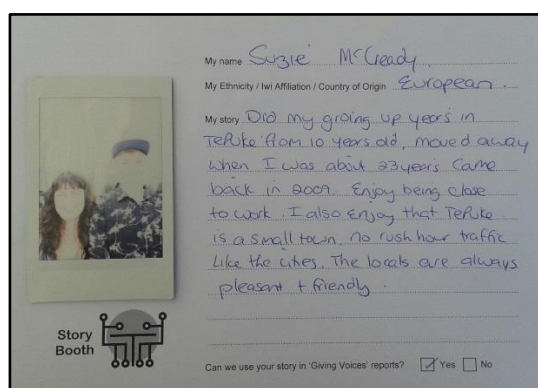 My name Suzie McCready.
My Ethnicity / Iwi Affiliation / Country of Origin European.
My story Did my groing up years in
TePuke from 10 years old, moved away
when I was about 23 years. Came
back in 2009. Enjoy being close
to work. I also enjoy that TePuke
is a small town, no rush hour traffic
like the cities. The locals are always
pleasant + friendly.
Story
Booth
Can we use your story in 'Giving Voices' reports? Yes No